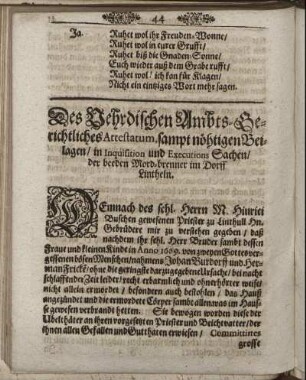 44
Ja. Ruhet wol ihr Freuden-Wonne/
Ruhet wol in eurer Grufft/
Ruhet biß die Gnaden-Sonne/
Euch wieder auß dem Grabe rufft/
Ruhet wol/ ich kan für Klagen/
Nicht ein eintziges Wort mehr sagen.
Des Vehrdischen Ambts-Ge-
richtliches Attestatum, sampt nöhtigen Bei-
lagen/ in Inquisition und Executions Sachen/
der beeden Mord-brenner im Dorff
Lintheln.
DEmnach des sehl. Herrn M. Hinrici
Buschen gewesenen Priester zu Linthell Hn.
Gebrüdere mir zu verstehen gegeben / daß
nachdem ihr sehl. Herr Bruder sambt dessen
Fraue und kleinen Kinde in Anno 1669. von zween Gottes ver-
gessenen bösen Menschen/ nahmens Johan Burdorff und Her-
man Fricke/ ohne die geringste darzu gegebene Ursache/ bei nacht
schlaffender Zeit leider/ recht erbarmlich und ohnerhörter weise
nicht allein ermordet / besondern auch bestohlen / das Hauß
angezündet und die ermordete Cörper sambt allem was im Hau-
se gewesen verbrandt hetten. Sie bewogen worden diese der
Ubelthäter an ihren vorgesetzten Priester und Beichtvatter/ der
ihnen allen Gefallen und Gutthaten erwiesen/ Committirtes
grosse